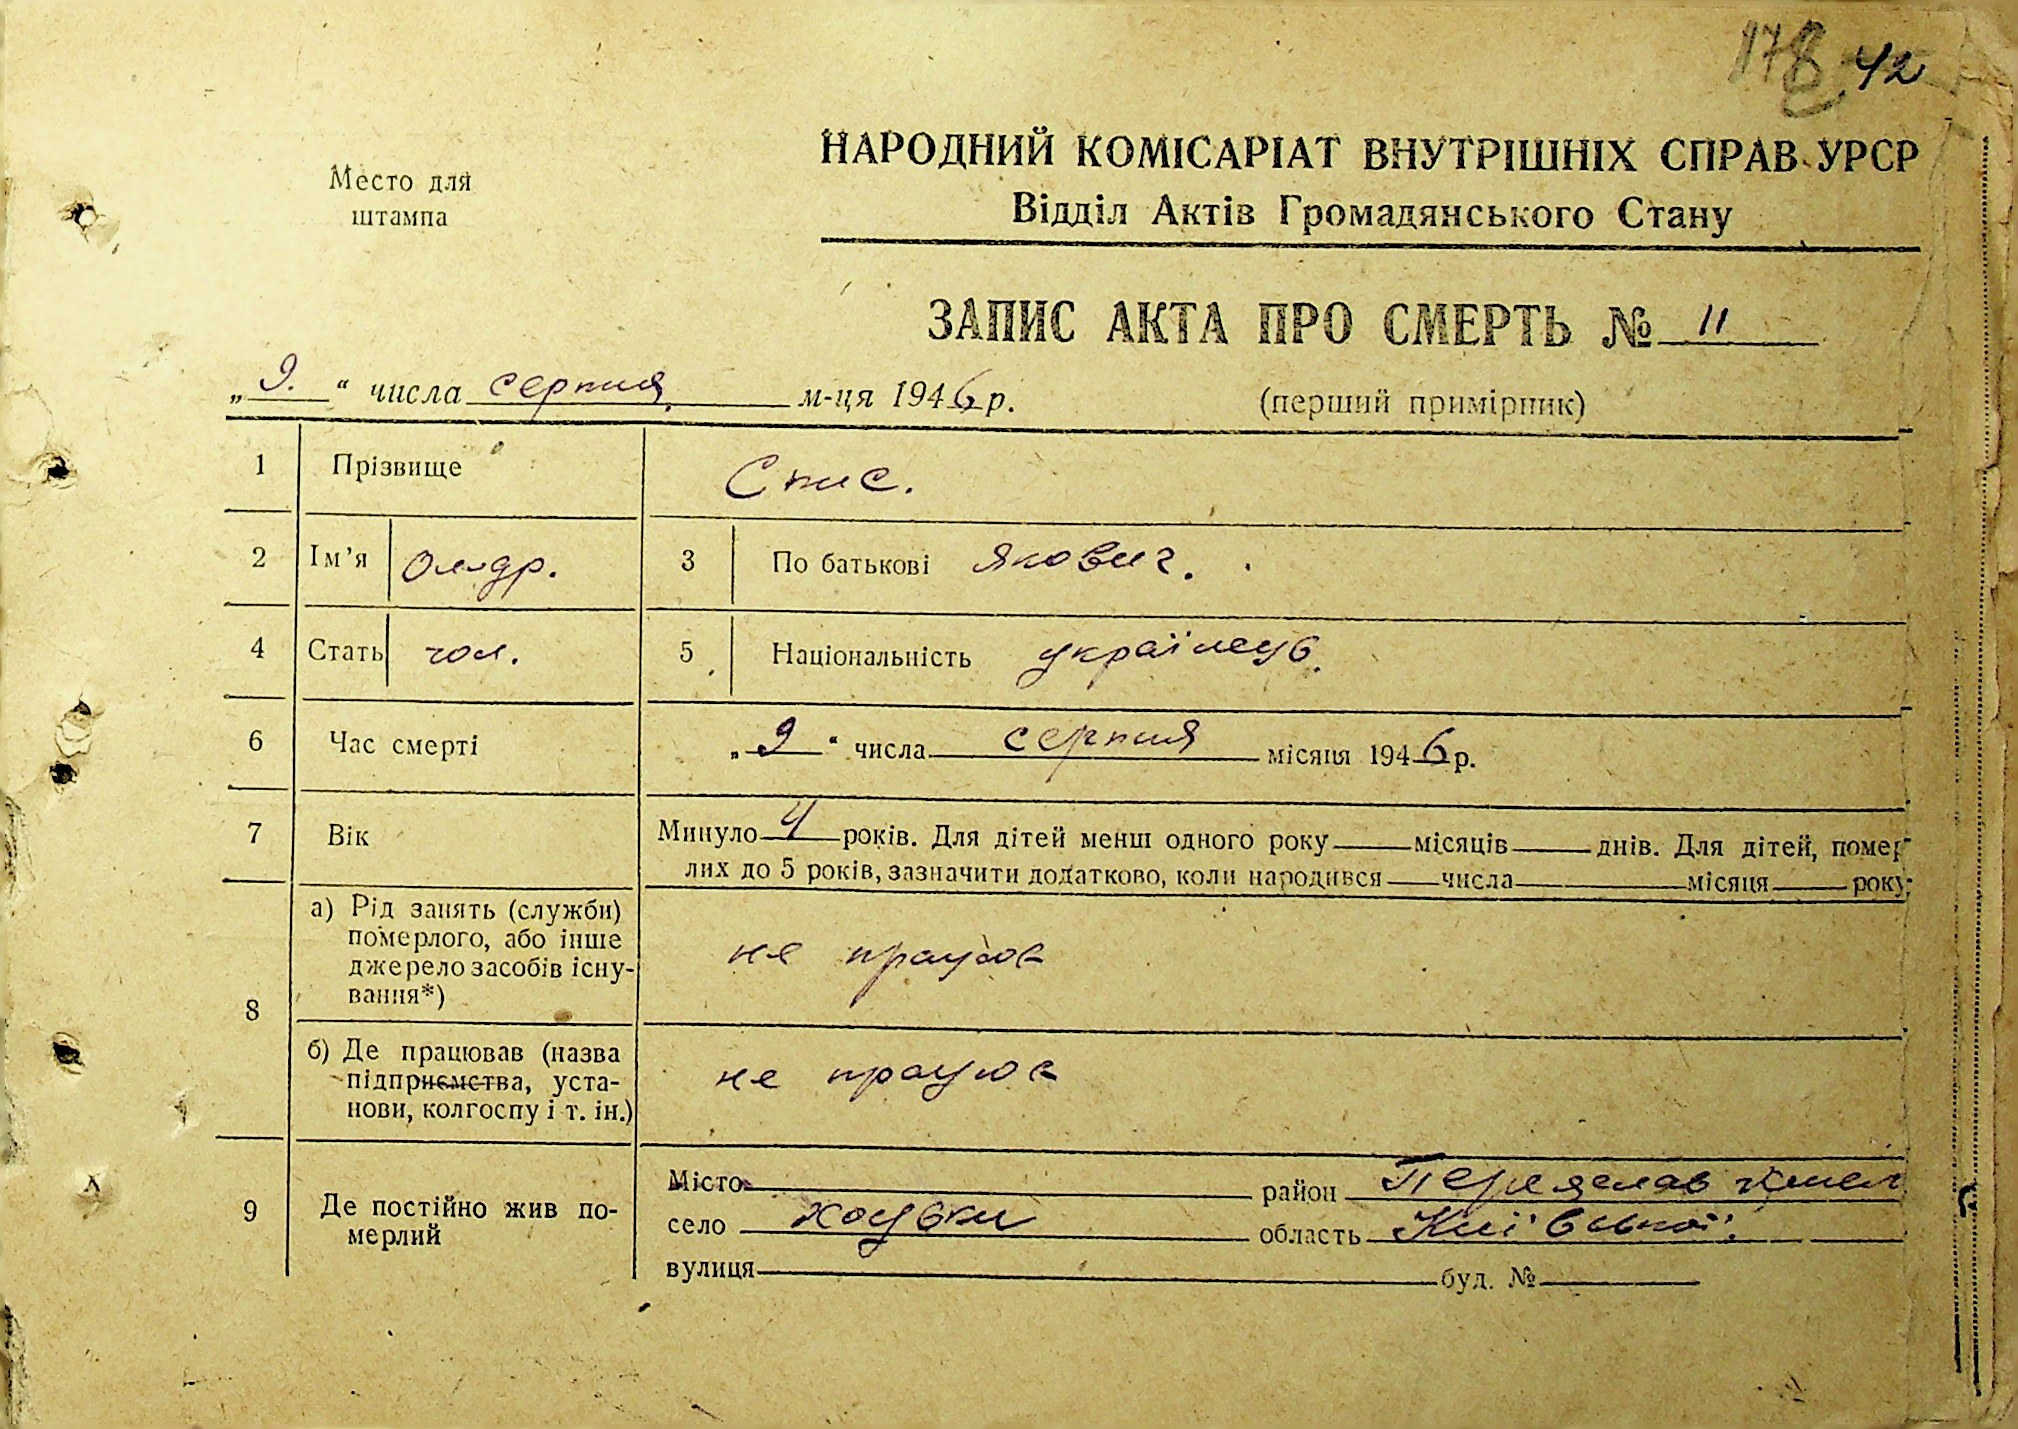 178 42
Место для
штампа
НАРОДНИЙ КОМІСАРІАТ ВНУТРІШНІХ СПРАВ УРСР
Відділ Актів Громадянського Стану
ЗАПИС АКТА ПРО СМЕРТЬ № 11
„9.“ числа серпня. м-ця 1946 р.
(перший примірник)
1 Прізвище Спис.
2 Ім’я Ол-др. 3 По батькові Якович.
4 Стать чол. 5 Національність українець.
6 Час смерті „9“ числа серпня місяця 1946 р.
7 Вік Минуло 4 років. Для дітей менш одного року місяців днів. Для дітей, помер-
лих до 5 років, зазначити додатково, коли народився числа місяця року
8 а) Рід занять (служби)
померлого, або інше
джерело засобів існу-
вання*)
не працює
б) Де працював (назва
підприємства, уста-
нови, колгоспу і т. ін.)
не працює
9 Де постійно жив по-
мерлий
Місто район Переяслав Хмел
село Хоцьки область Київської.
вулиця буд. №